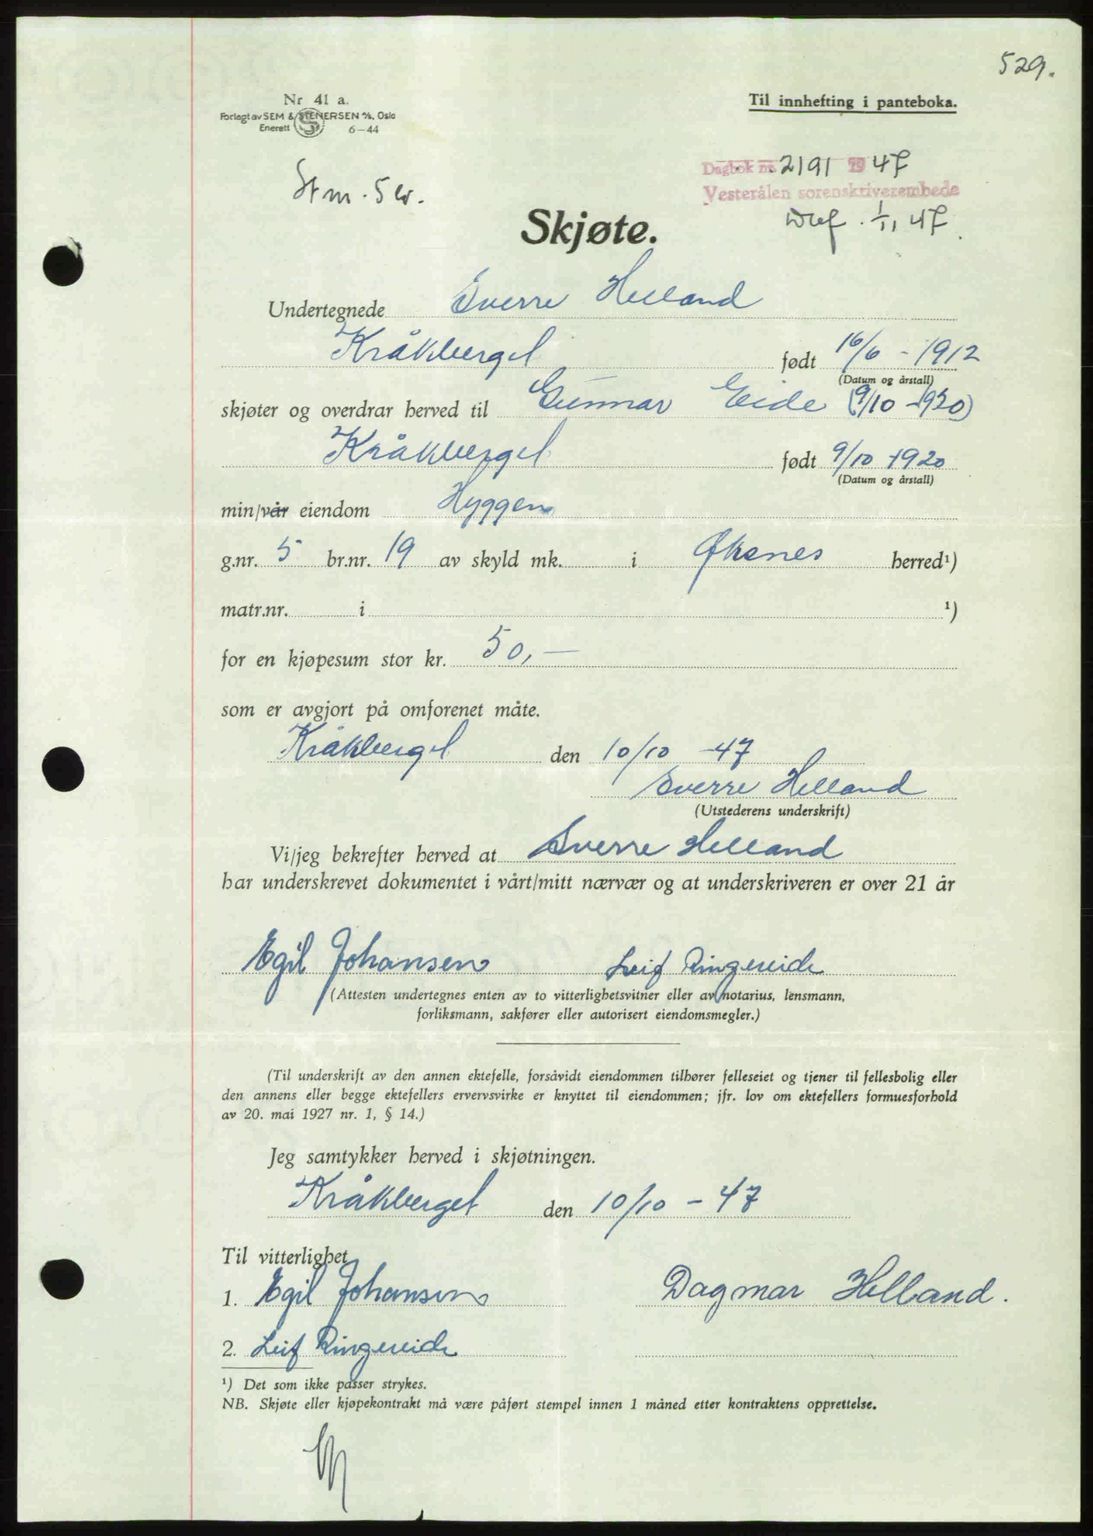 529.
Nr 41 a.
Forlagt av SEM & STENERSEN A/S, Oslo
Enerett 6-44
Til innhefting i panteboka.
Stm. 5 kr.
Dagbok nr. 2191 1947
Vesterålen sorenskriverembede
1/11 47.
Skjøte.
Undertegnede Sverre Helland
Kråkberget født 16/6 - 1912
(Datum og årstall)
skjøter og overdrar herved til Gunnar Eide (9/10 - 1920)
Kråkberget født 9/10 - 1920
(Datum og årstall)
min/vår eiendom Hyggen
g.nr. 5 br.nr. 19 av skyld mk. i Øksnes herred¹)
matr.nr. i ¹)
for en kjøpesum stor kr. 50,—
som er avgjort på omforenet måte.
Kråkberget den 10/10 -47
Sverre Helland
(Utstederens underskrift)
Vi/jeg bekrefter herved at Sverre Helland
har underskrevet dokumentet i vårt/mitt nærvær og at underskriveren er over 21 år
Egil Johansen Leif Ringereide
(Attesten undertegnes enten av to vitterlighetsvitner eller av notarius, lensmann,
forliksmann, sakfører eller autorisert eiendomsmegler.)
(Til underskrift av den annen ektefelle, forsåvidt eiendommen tilhører felleseiet og tjener til fellesbolig eller
den annens eller begge ektefellers ervervsvirke er knyttet til eiendommen; jfr. lov om ektefellers formuesforhold
av 20. mai 1927 nr. 1, § 14.)
Jeg samtykker herved i skjøtningen.
Kråkberget den 10/10 - 47
Til vitterlighet
1. Egil Johansen Dagmar Helland.
2. Leif Ringereide
¹) Det som ikke passer strykes.
NB. Skjøte eller kjøpekontrakt må være påført stempel innen 1 måned etter kontraktens opprettelse.